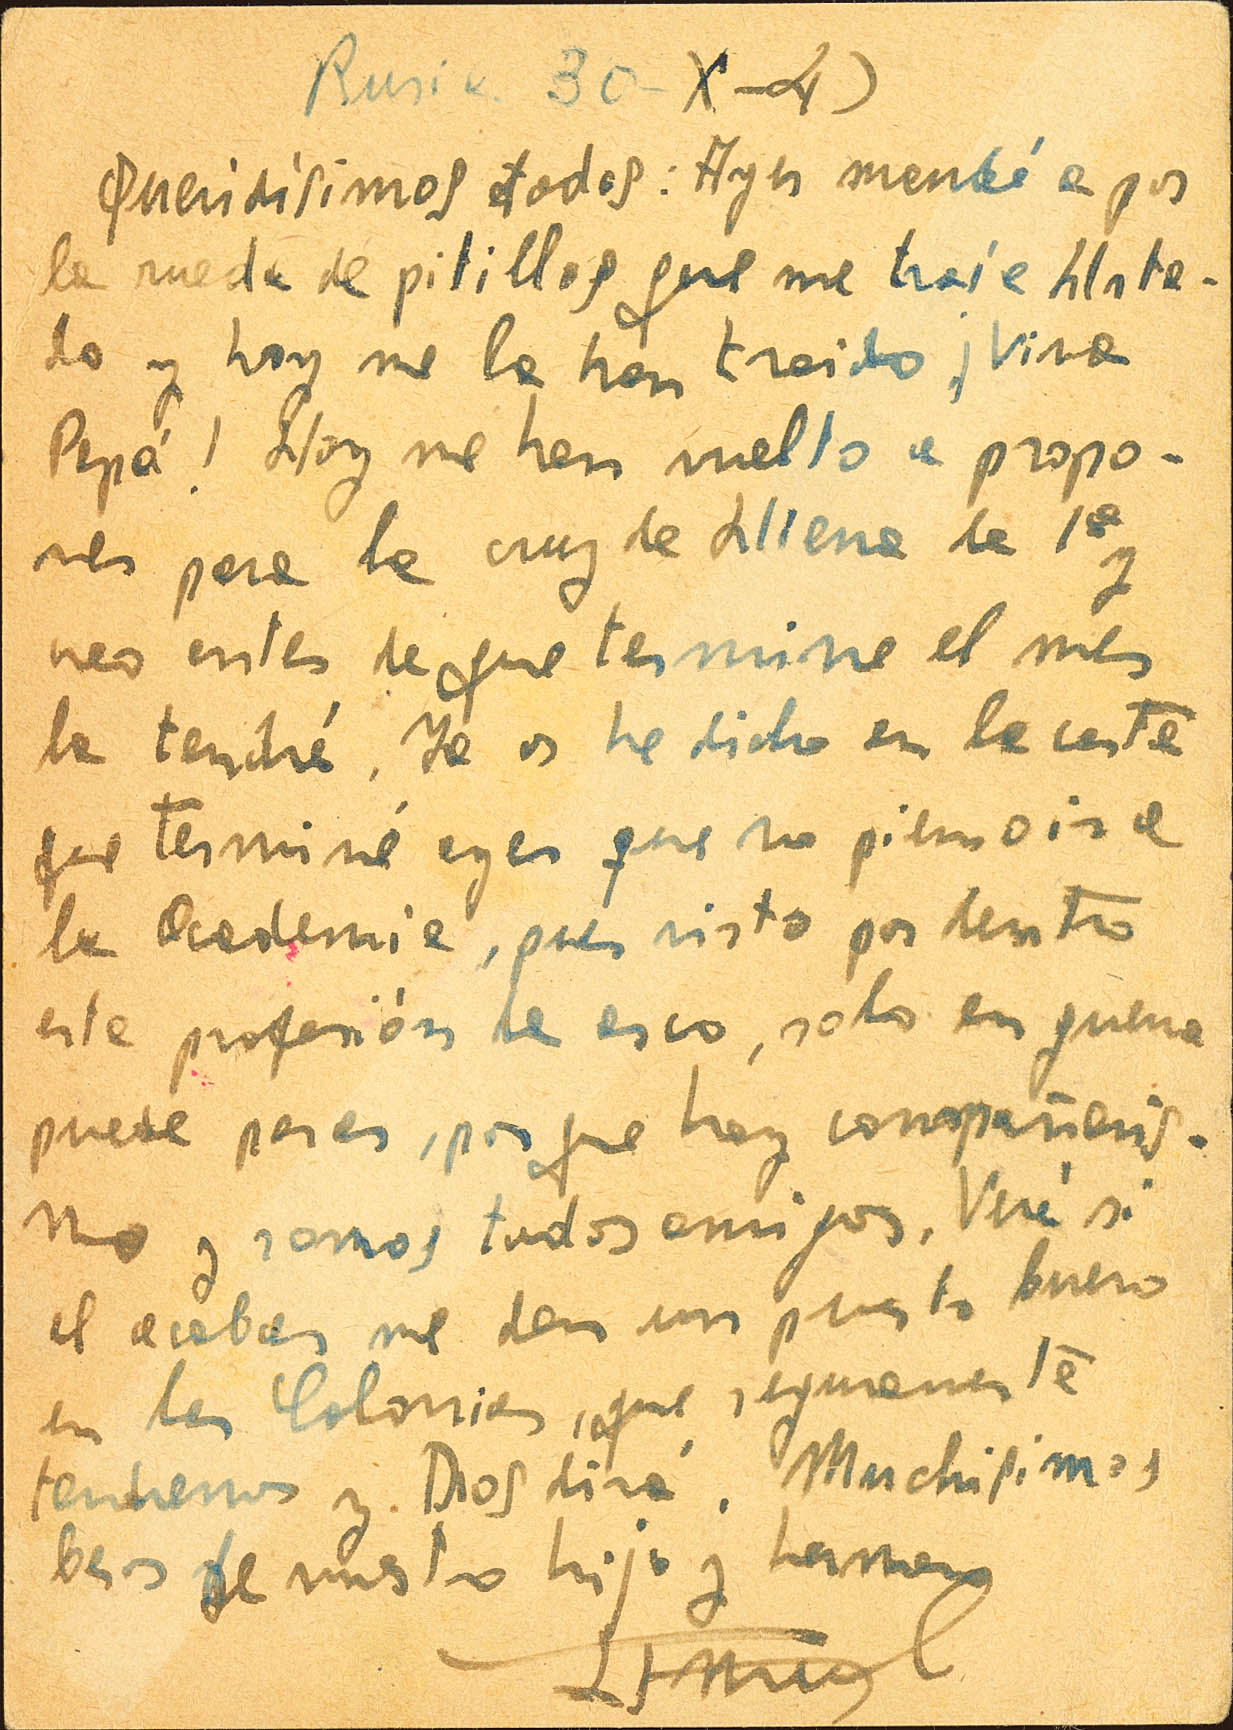 Rusia 30-X-41
Queridísimos todos: Ayer mandé a por
la rueda de pitillos que me traía Hurta-
do y hoy me la han traido ¡Viva
Papá! Hoy me han vuelto a propo-
ner para la cruz de Hierro de 1ª y
creo antes de que termine el mes
la tendré. Ya os he dicho en la carta
que terminé ayer que no pienso ir a
la Academia, pues visto por dentro
esta profesión da asco, solo en guerra
puede pasar, porque hay compañeris-
mo y somos todos amigos. Veré si
al acabar me dan un puesto bueno
en las Colonias, que seguramente
tendremos y Dios dirá. Muchisimos
besos de vuestro hijo y hermano